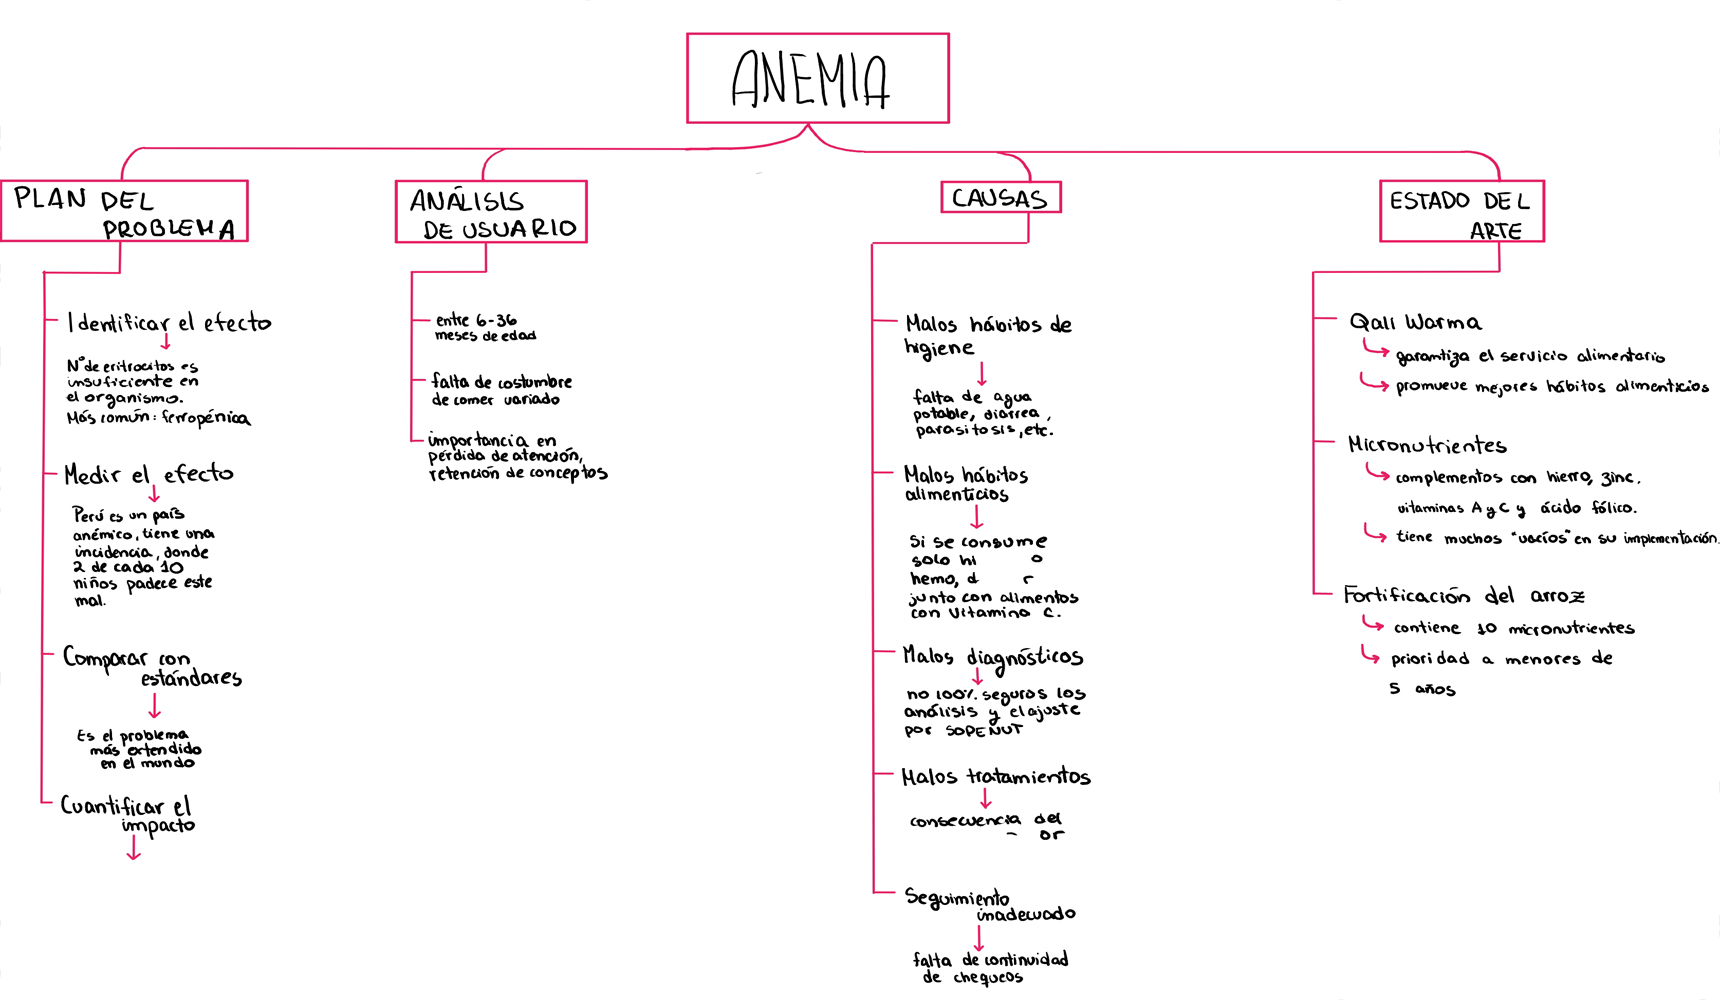 ANEMIA
PLAN DEL
PROBLEMA
Identificar el efecto
N° de eritrocitos es
insuficiente en
el organismo.
Más común: ferropénica
Medir el efecto
Perú es un país
anémico, tiene una
incidencia, donde
2 de cada 10
niños padece este
mal.
Comparar con
estándares
Es el problema
más extendido
en el mundo
Cuantificar el
impacto
ANÁLISIS
DE USUARIO
entre 6-36
meses de edad
falta de costumbre
de comer variado
importancia en
pérdida de atención,
retención de conceptos
CAUSAS
Malos hábitos de
higiene
falta de agua
potable, diarrea,
parasitosis, etc.
Malos hábitos
alimenticios
Si se consume
solo
hemo,
junto con alimentos
con Vitamina C.
Malos diagnósticos
no 100% seguros los
análisis y el ajuste
por SOPENUT
Malos tratamientos
consecuencia del
Seguimiento
inadecuado
falta de continuidad
de chequeos
ESTADO DEL
ARTE
Qali Warma
garantiza el servicio alimentario
promueve mejores hábitos alimenticios
Micronutrientes
complementos con hierro, zinc,
vitaminas A y C y ácido fólico.
tiene muchos "vacíos" en su implementación.
Fortificación del arroz
contiene 10 micronutrientes
prioridad a menores de
5 años